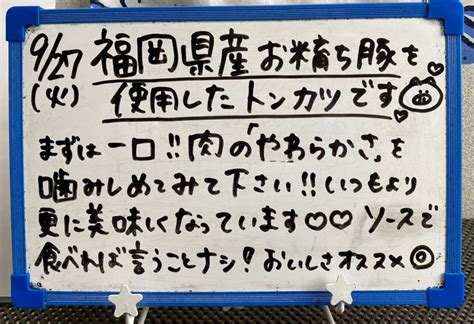 9/27 福岡県産お米育ち豚を
(火) 使用したトンカツです
まずは一口!!肉の「やわらかさ」を
噛みしめてみて下さい!!いつもより
更に美味しくなっています♡♡ ソースで
食べれば言うことナシ!おいしさオススメ◎